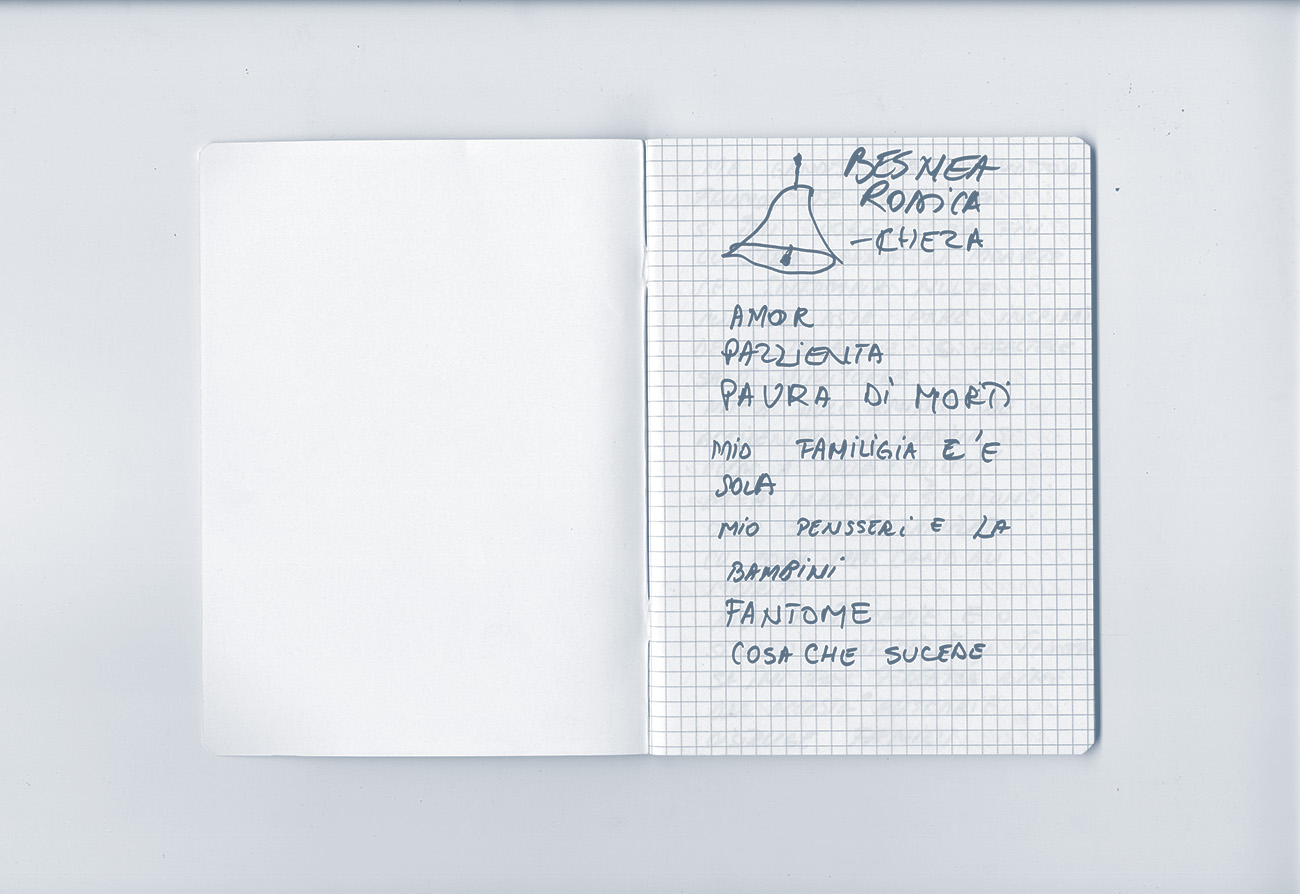 BESNEA
RODICA
-CHEZA
AMOR
PAZZIENTA
PAURA Di MORTi
MiO FAMiLiGiA E'E
SOLA
MiO PENSSERi E LA
BAMBiNi
FANTOME
COSA CHE SUCEDE